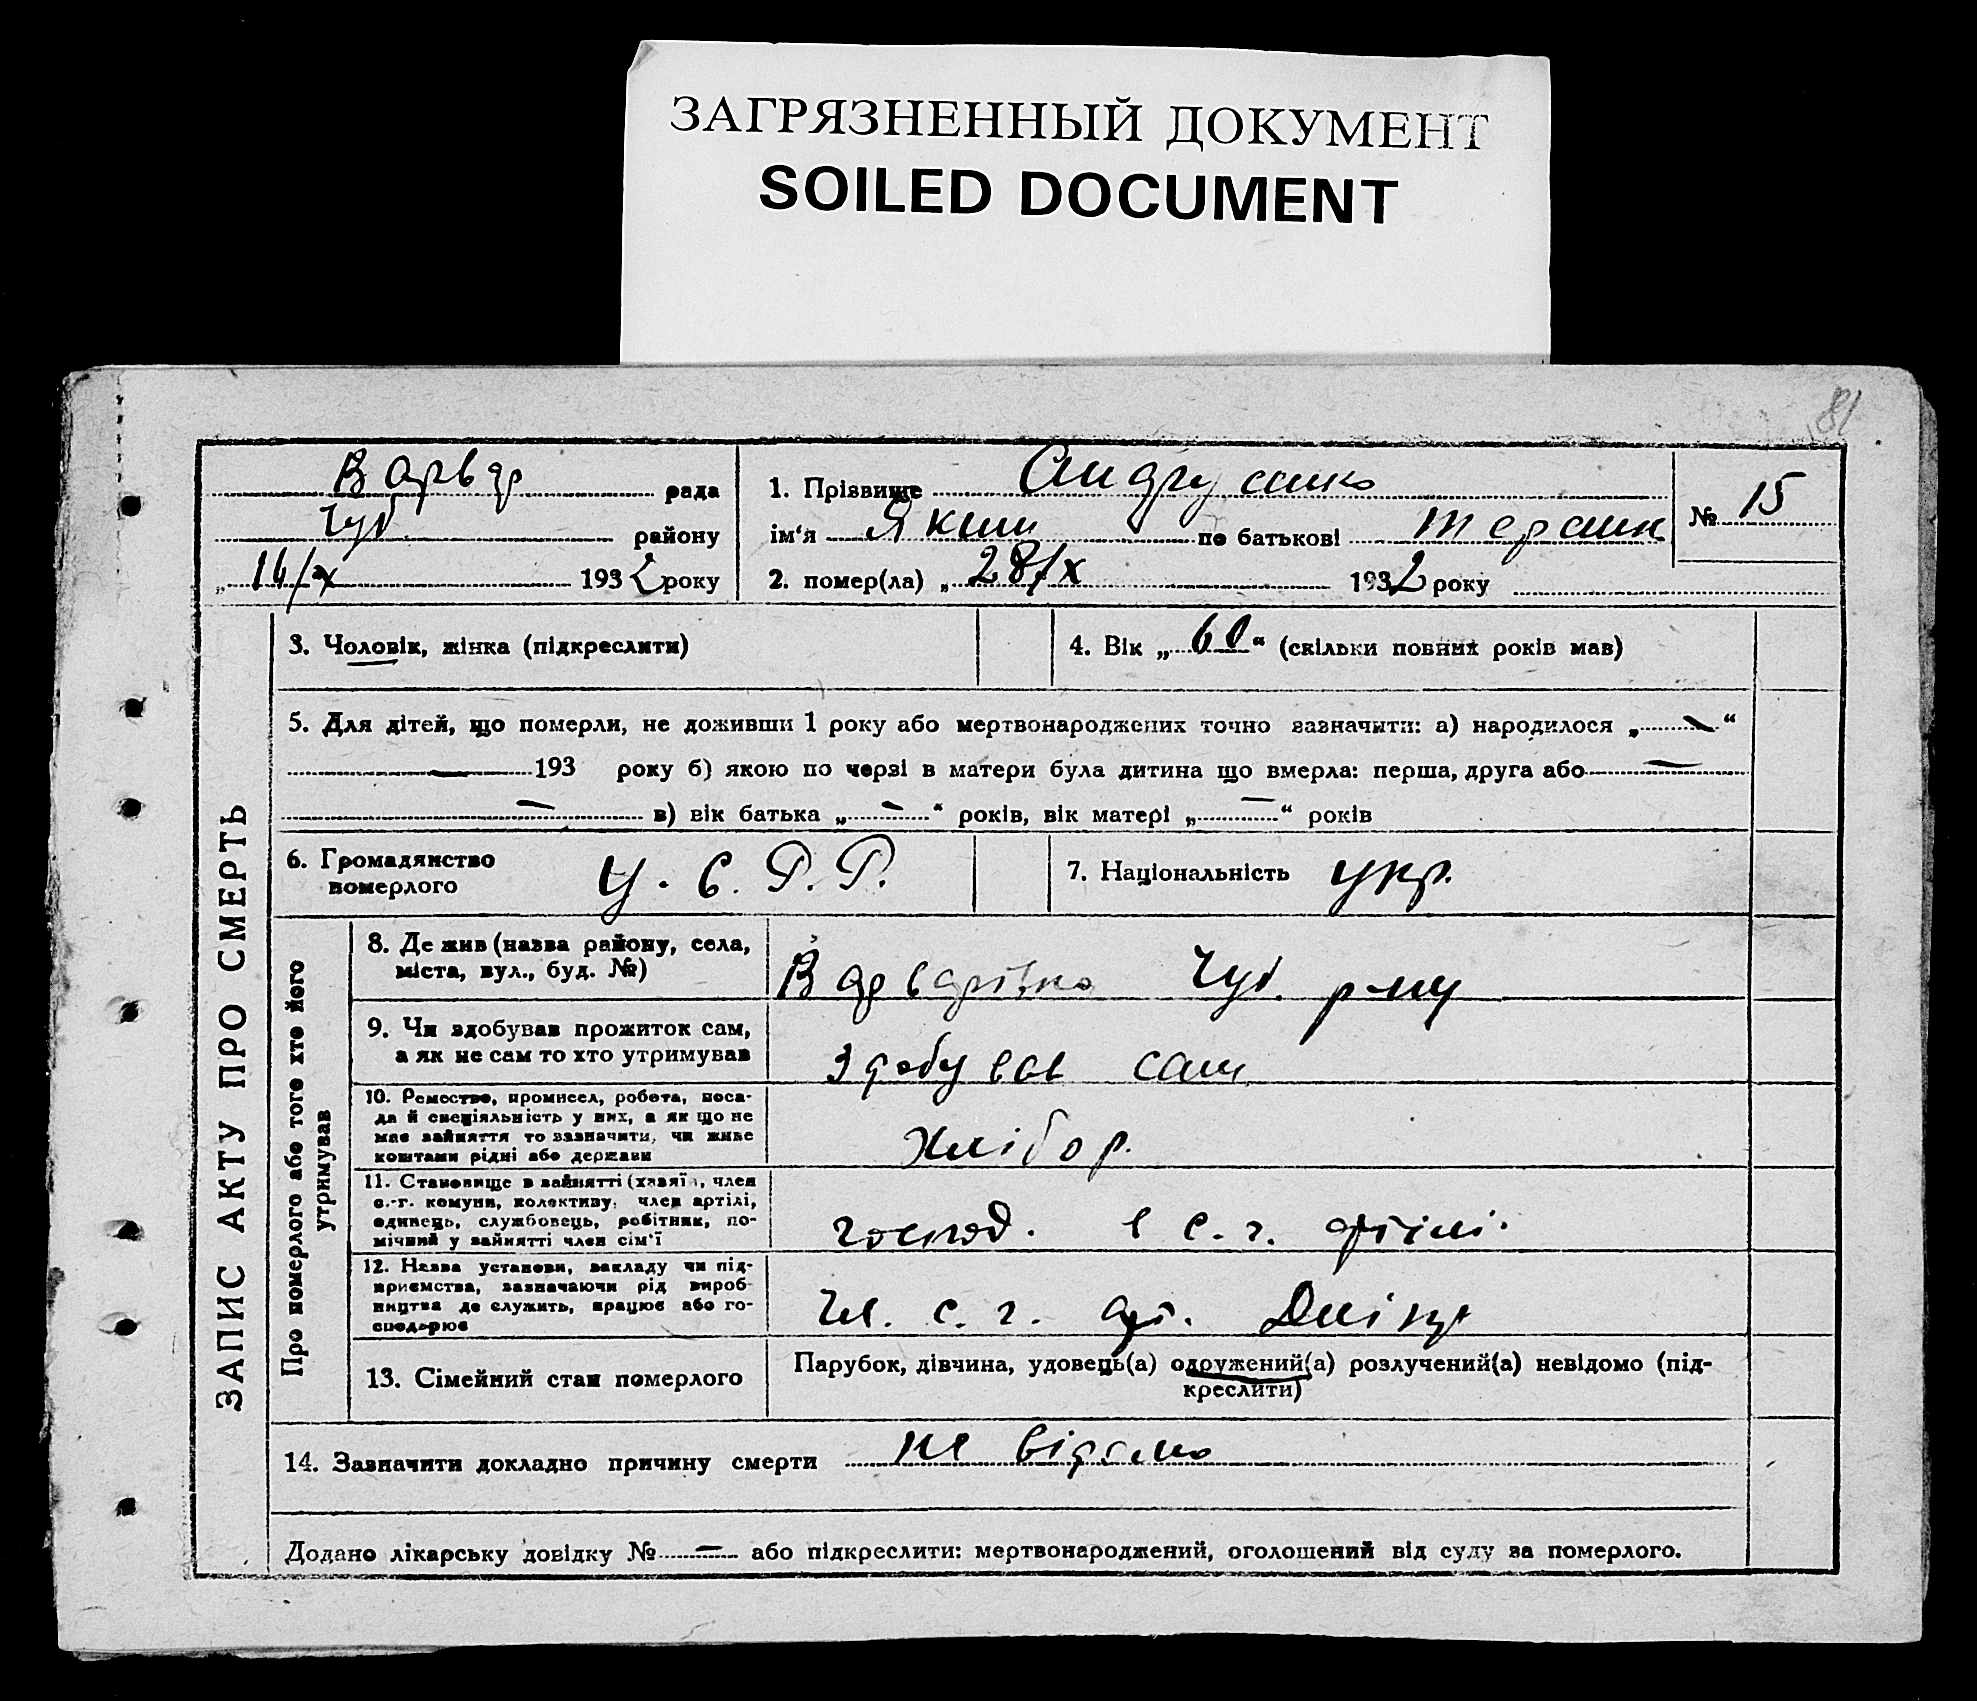 ЗАГРЯЗНЕННЫЙ ДОКУМЕНТ
SOILED DOCUMENT
81
Варвар рада
Чуб. району
193 2 року
1. Прізвище
ім'я Яким по батькові
2. помер(ла) „ 28/х 1932 року
№ 15
ЗАПИС АКТУ ПРО СМЕРТЬ
3. Чоловік, жінка (підкреслити)
4. Вік „ 60 “ (скільки повних років мав)
5. Для дітей, що померли, не доживши 1 року або мертвонароджених точно зазначити: а) народилося „ — “
— 193 року б) якою по черзі в матери була дитина що вмерла: перша, друга або —
— в) вік батька „ — “ років, вік матері „ — “ років
6. Громадянство
померлого
У. С. Р. Р.
7. Національність укр.
Про померлого або того хто його
утримував
8. Де жив (назва району, села,
міста, вул., буд. №)
Варварівка Чуб. р-ну
9. Чи здобував прожиток сам,
а як не сам то хто утримував
Здобував сам
10. Ремество, промисел, робота, поса-
да й спеціяльність у них, а як що не
має зайняття то зазначити, чи живе
коштами рідні або держави
Хлібор.
11. Становище в зайнятті (хазяїн, член
с.-г. комуни, колективу, член артілі,
одинець, службовець, робітник, по-
мічний у зайнятті член сім'ї
господ. в с. г. артілі.
12. Назва установи, закладу чи під-
приємства, зазначаючи рід вироб-
ництва де служить, працює або го-
сподарює
Чл. с. г. арт.
13. Сімейний стан померлого
Парубок, дівчина, удовець(а) одружений(а) розлучений(а) невідомо (під-
креслити)
14. Зазначити докладно причину смерти не відомо
Додано лікарську довідку № — або підкреслити: мертвонароджений, оголошений від суду за померлого.